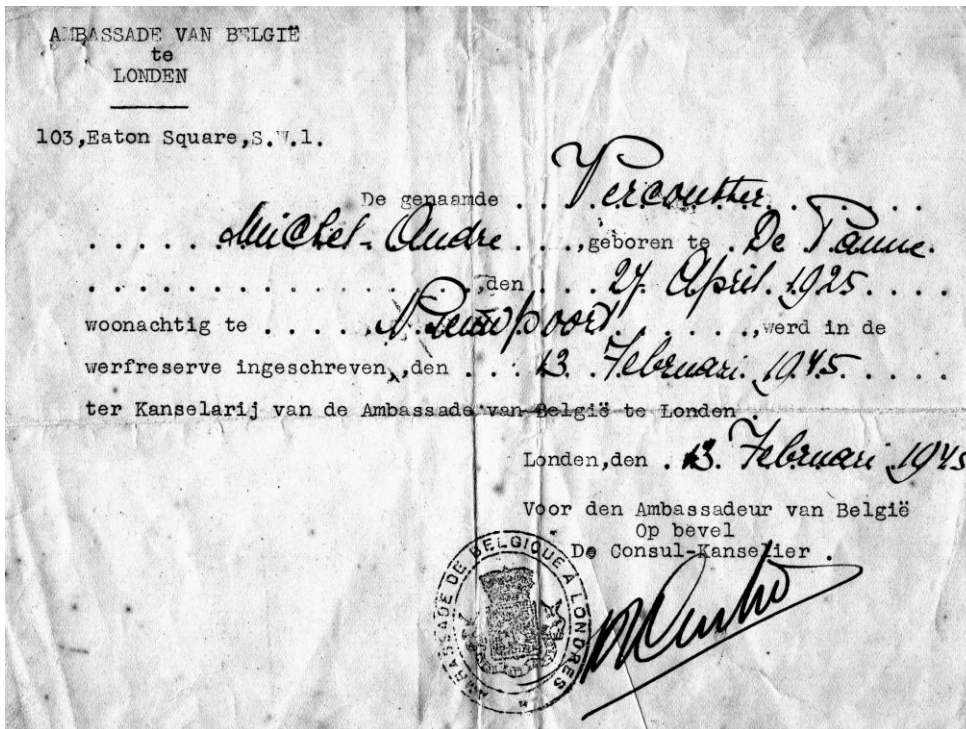 AMBASSADE VAN BELGIË
te
LONDEN
103,Eaton Square,S.W.1.
De genaamde . . Vercoutter. . . . . .
. . . . . Michel-Andre . . .,geboren te . De Panne.
. . . . . . . . . . . . . . . . .,den . . . 27. April. 1925. . . .
woonachtig te . . . . . Nieuwpoort. . . . . .,werd in de
werfreserve ingeschreven,den . . . 13. Februari. 1945. . . . .
ter Kanselarij van de Ambassade van België te Londen.
Londen,den . 13. Februari 1945
Voor den Ambassadeur van België
Op bevel
De Consul-Kanselier .
AMBASSADE DE BELGIQUE A LONDRES